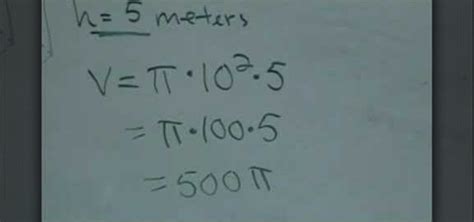 h = 5 meters
V = π · 10² · 5
= π · 100 · 5
= 500 π